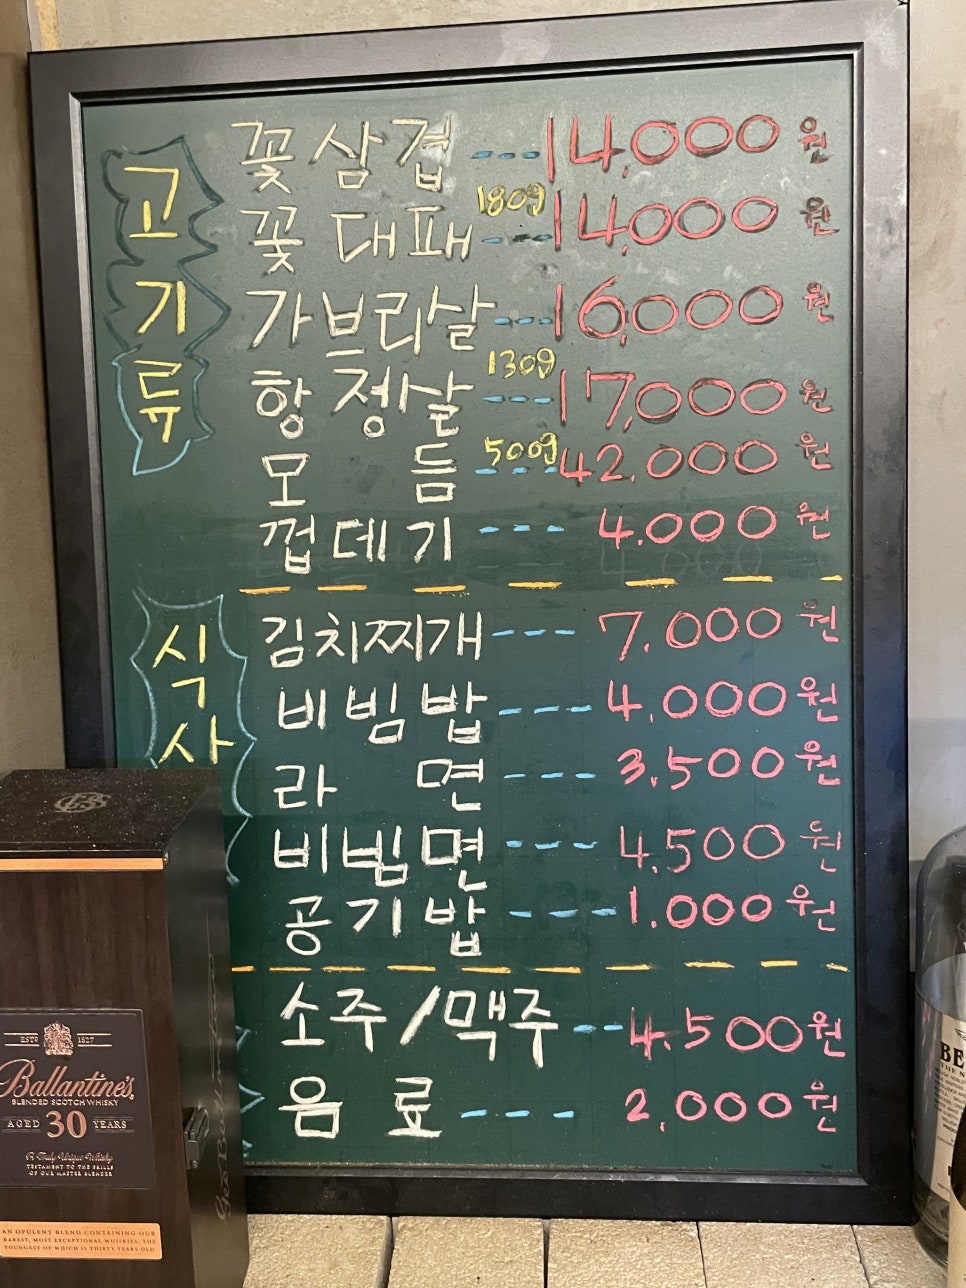 고기류
꽃삼겹 --- 14,000원
180g
꽃대패 --- 14,000원
가브리살 --- 16,000원
130g
항정살 --- 17,000원
500g
모듬 --- 42,000원
껍데기 --- 4.000원
식사
김치찌개 --- 7.000원
비빔밥 --- 4.000원
라면 --- 3.500원
비빔면 --- 4.500원
공기밥 --- 1.000원
소주/맥주 -- 4.500원
음료 --- 2,000원
ESTD 1827
Ballantine's
BLENDED SCOTCH WHISKY
AGED 30 YEARS
A Truly Unique Whisky
TESTAMENT TO THE SKILLS
OF OUR MASTER BLENDER
AN OPULENT BLEND CONTAINING OUR
RAREST, MOST EXCEPTIONAL WHISKIES, THE
YOUNGEST OF WHICH IS THIRTY YEARS OLD
BE